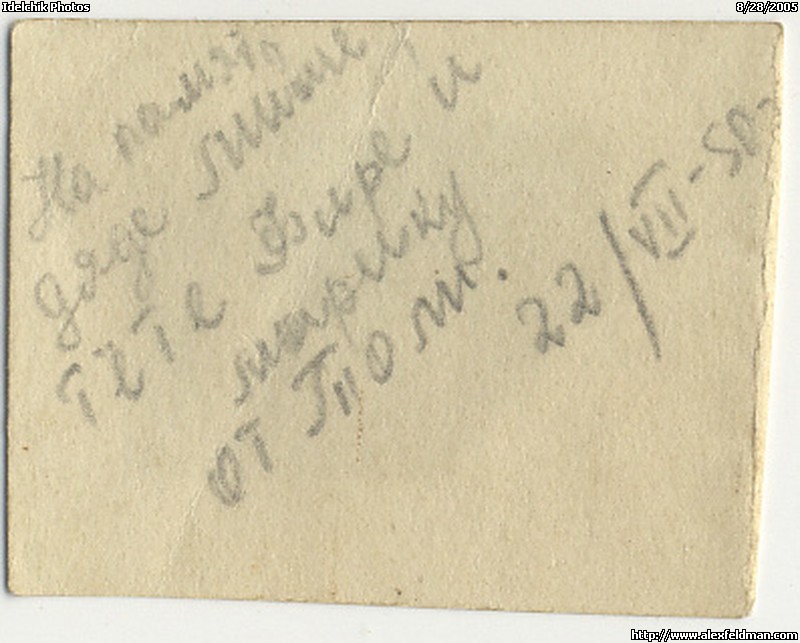 Idelchik Photos
8/28/2005
На память
дяде Мише
тете Фире и
Марику
от
22/VII-50г
http://www.alexfeldman.com